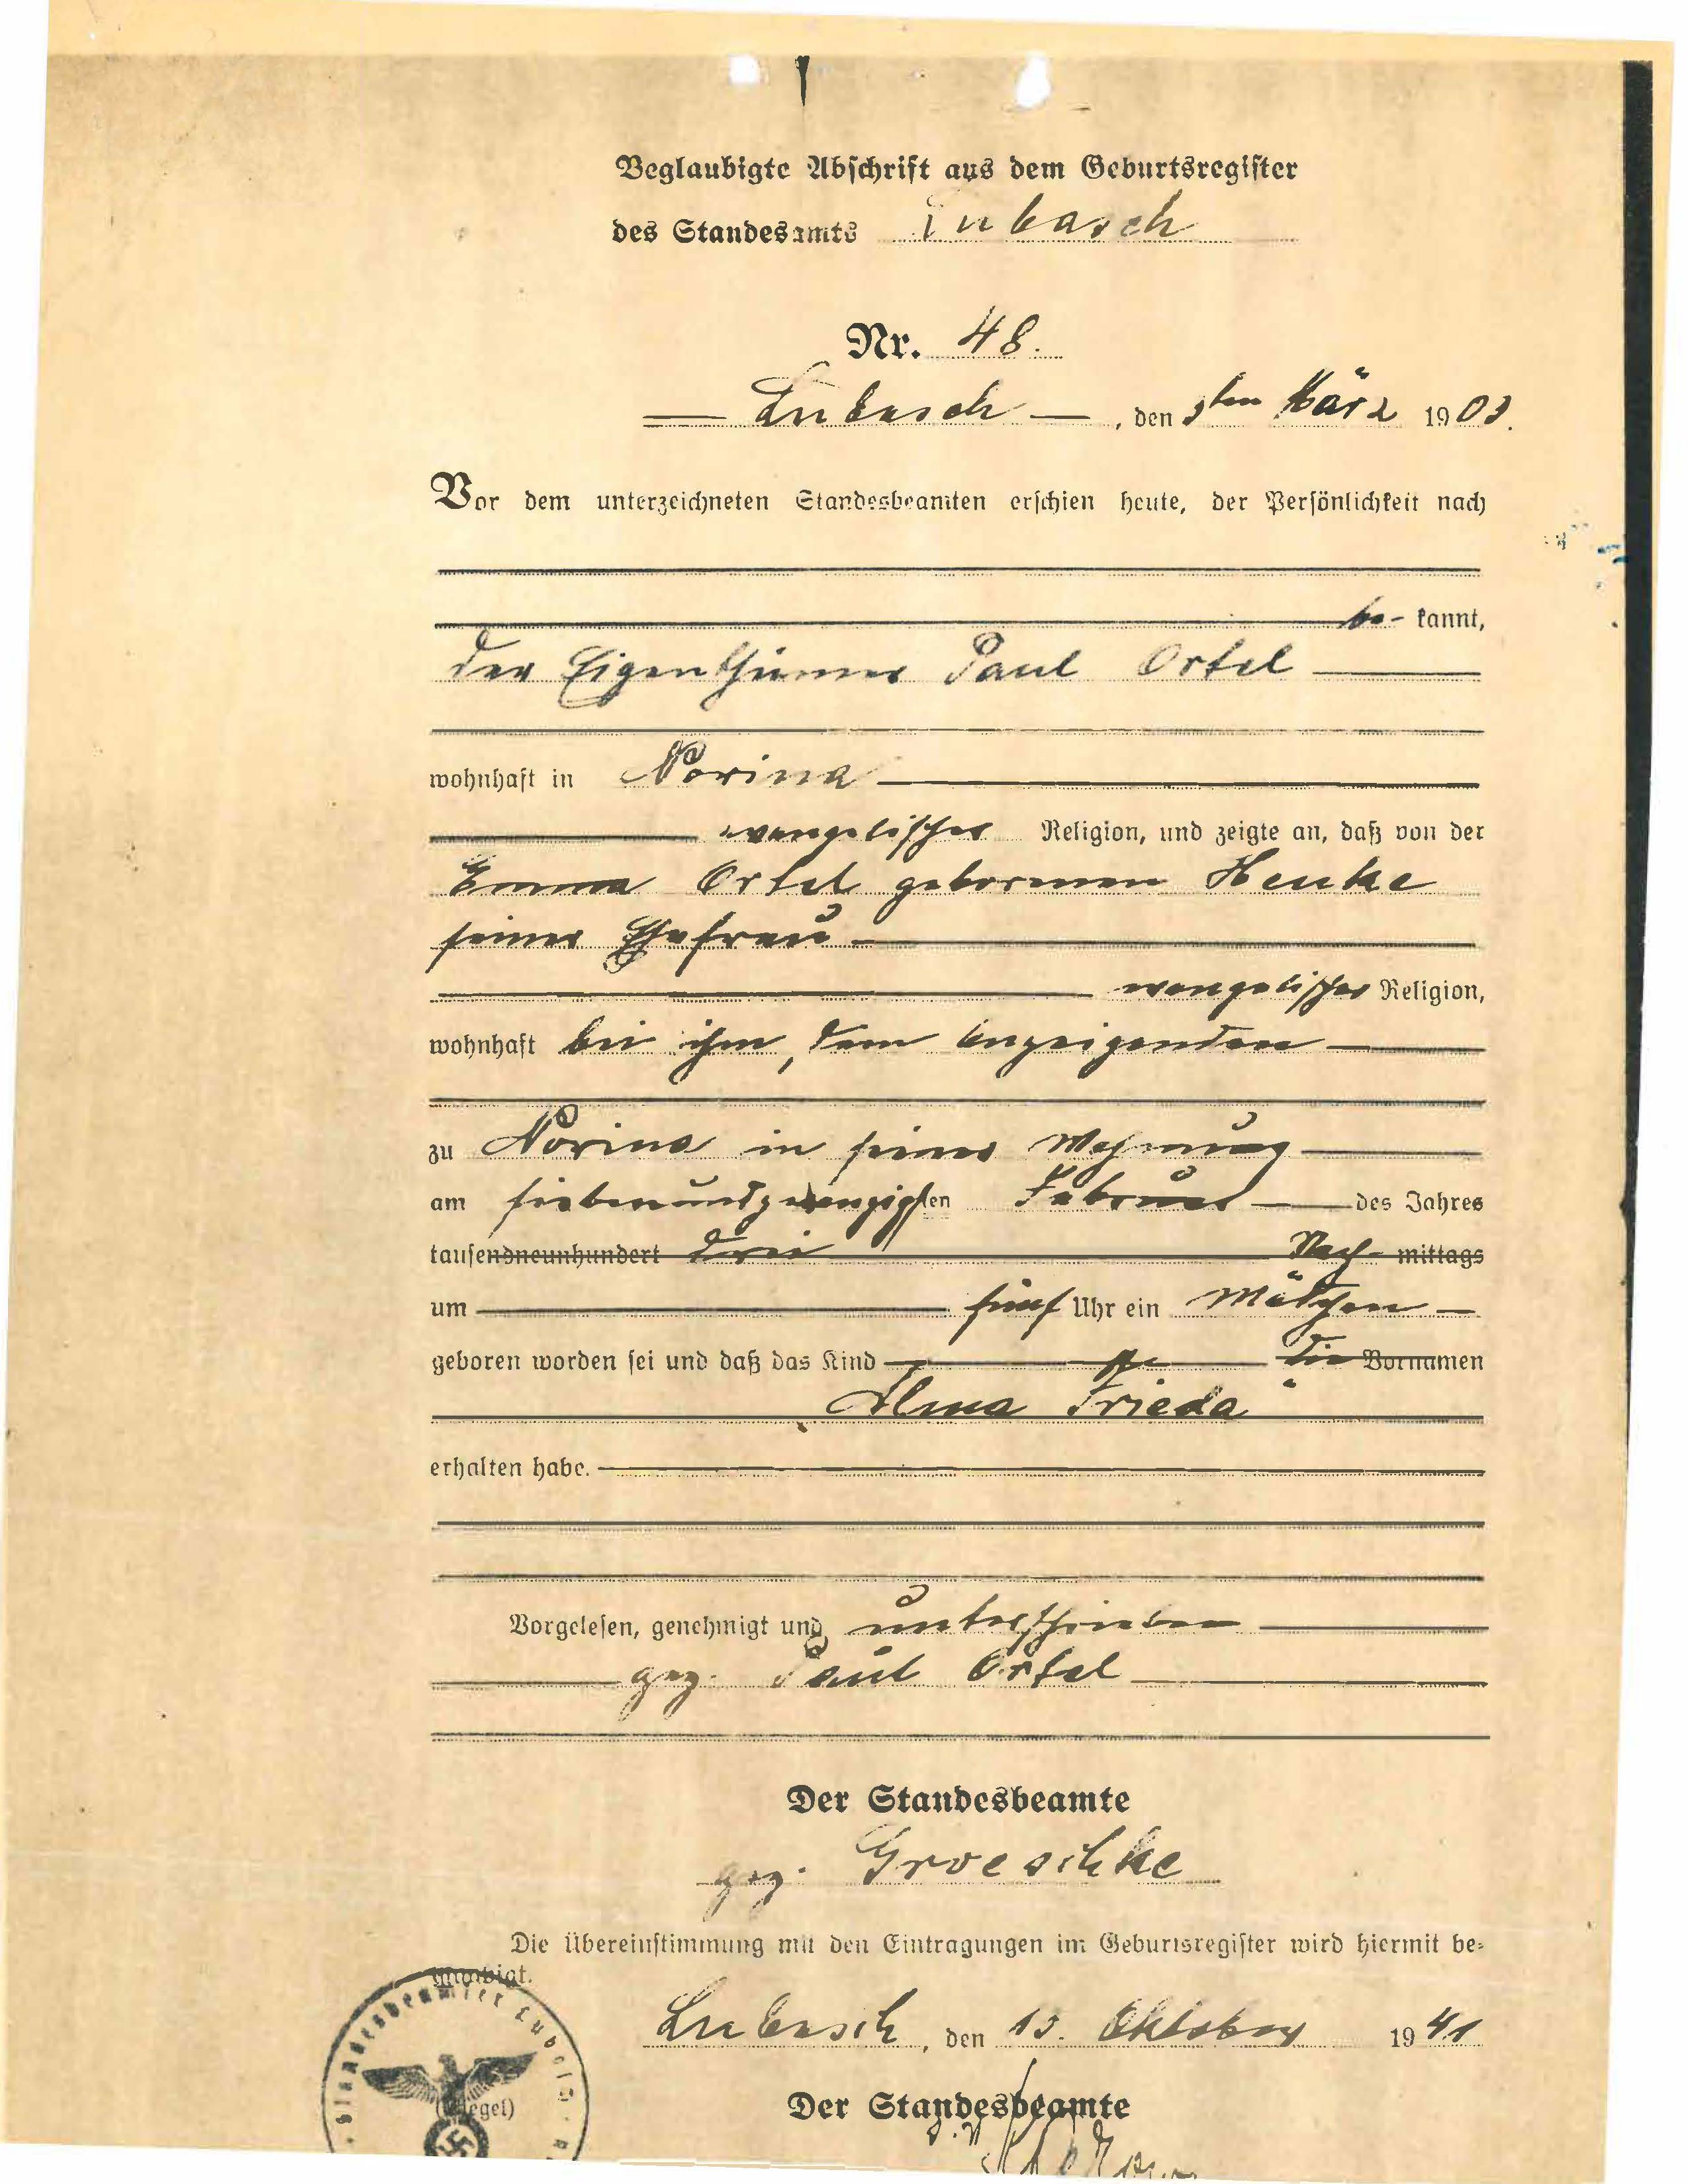 Beglaubigte Abschrift aus dem Geburtsregister
des Standesamts Lubasch
Nr. 48.
Lubasch, den 3ten März 1903.
Vor dem unterzeichneten Standesbeamten erschien heute, der Persönlichkeit nach
be- kannt,
der Eigenthümer Paul Ortel
wohnhaft in Norina
evangelischer Religion, und zeigte an, daß von der
Emma Ortel geborenen Henke
seiner Ehefrau
evangelischer Religion,
wohnhaft bei ihm, dem Anzeigenden
zu Norina in seiner Wohnung
am siebenundzwanzigsten Februar des Jahres
tausendneunhundert drei Nach- mittags
um fünf Uhr ein Mädchen
geboren worden sei und daß das Kind die Vornamen
„Alma Frieda“
erhalten habe.
Vorgelesen, genehmigt und unterschrieben
gez. Paul Ortel
Der Standesbeamte
gez. Groeschke
Die Übereinstimmung mit den Eintragungen im Geburtsregister wird hiermit be-
glaubigt.
Lubasch, den 13. Oktober 1941
(Siegel)
Der Standesbeamte